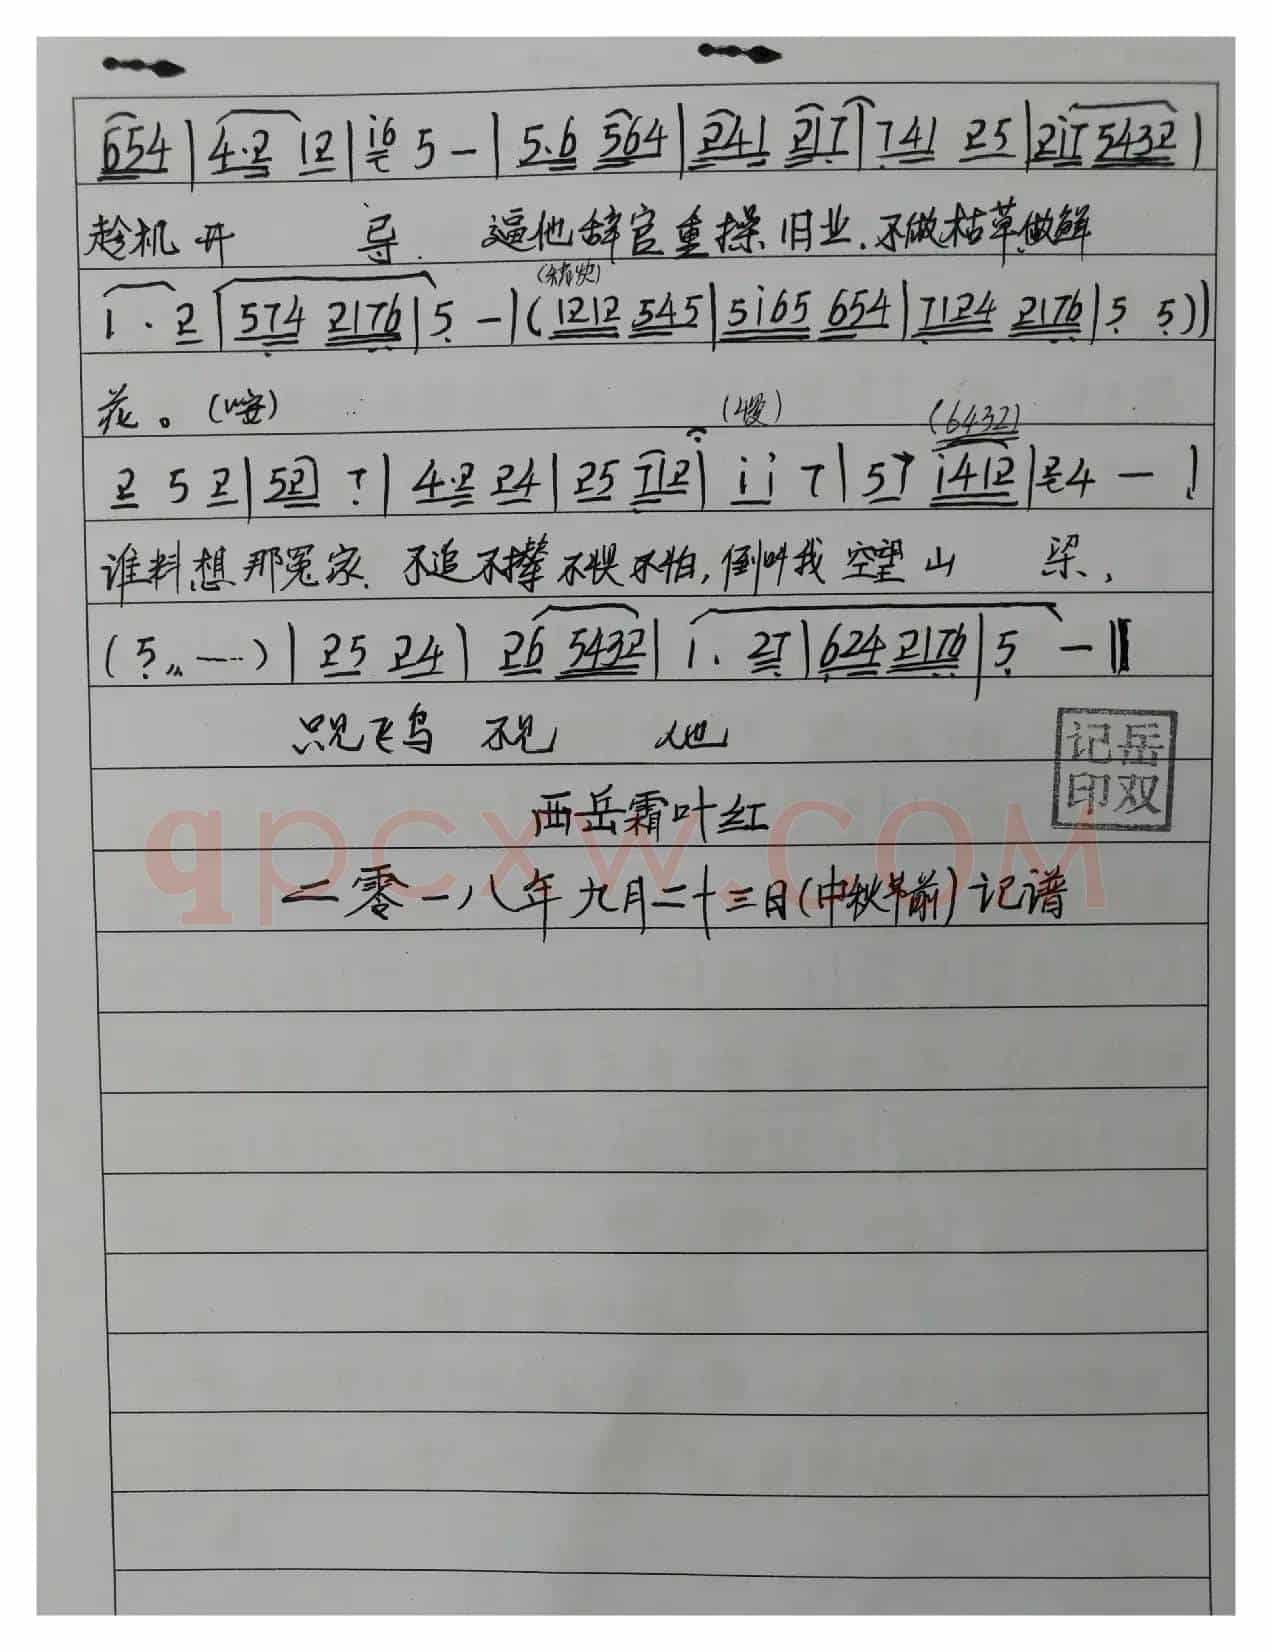 654 | 4·2 12 | i6 5 — | 5.6 564 | 241 217 | 741 25 | 2i7 5432 |
趁机开 导. 逼他辞官重操旧业.不做枯草做鲜
(稍快)
1 · 2 | 574 2176 | 5 — | (1212 545 | 5i65 654 | 7124 2176 | 5 5) |
花。(咹) (慢) (6432)
2 5 2 | 52 7 | 4·2 24 | 25 712 | i i 7 | 57 i412 | 24 — |
谁料想那冤家.不追不撵不惧不怕,倒叫我空望山 梁,
(5 〃 —…) | 25 24 | 26 5432 | 1. 27 | 624 2176 | 5 — ‖
只见飞鸟 不见 他
记岳
印双
西岳霜叶红
qpcxw.COM
二零一八年九月二十三日(中秋节前)记谱